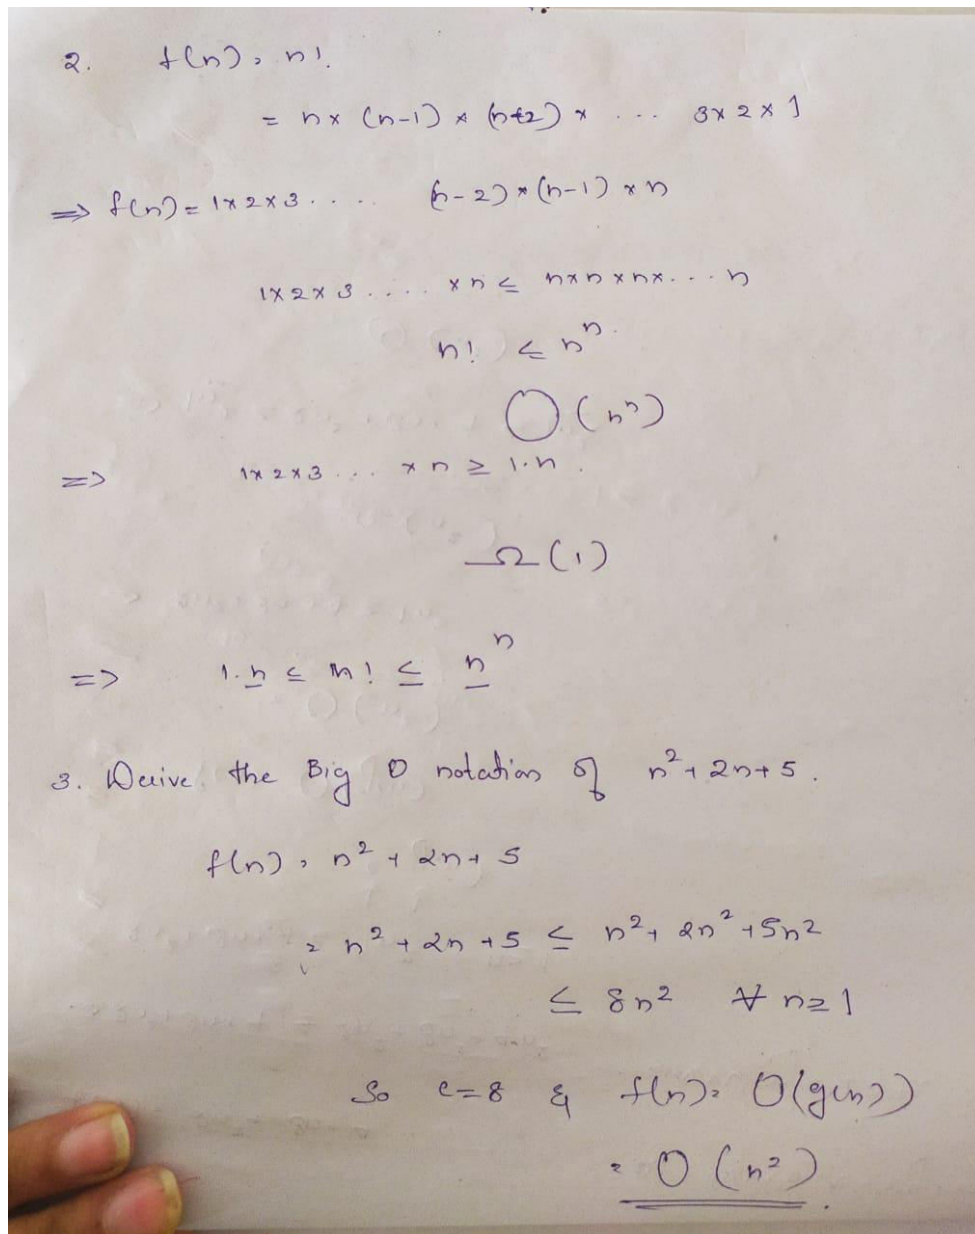 2. f(n) = n!
= n x (n-1) x (n-2) x ... 3 x 2 x 1
=> f(n) = 1 x 2 x 3 .... (n-2) x (n-1) x n
1 x 2 x 3 .... x n ≤ n x n x n x ... n
n! ≤ nⁿ.
O (nⁿ)
=> 1 x 2 x 3 ... x n ≥ 1.n .
Ω (1)
=> 1.n ≤ n! ≤ nⁿ
3. Derive the Big O notation of n² + 2n + 5 .
f(n) = n² + 2n + 5
= n² + 2n + 5 ≤ n² + 2n² + 5n2
≤ 8n² ∀ n ≥ 1
So c=8 & f(n) = O(g(n))
= O (n²) .